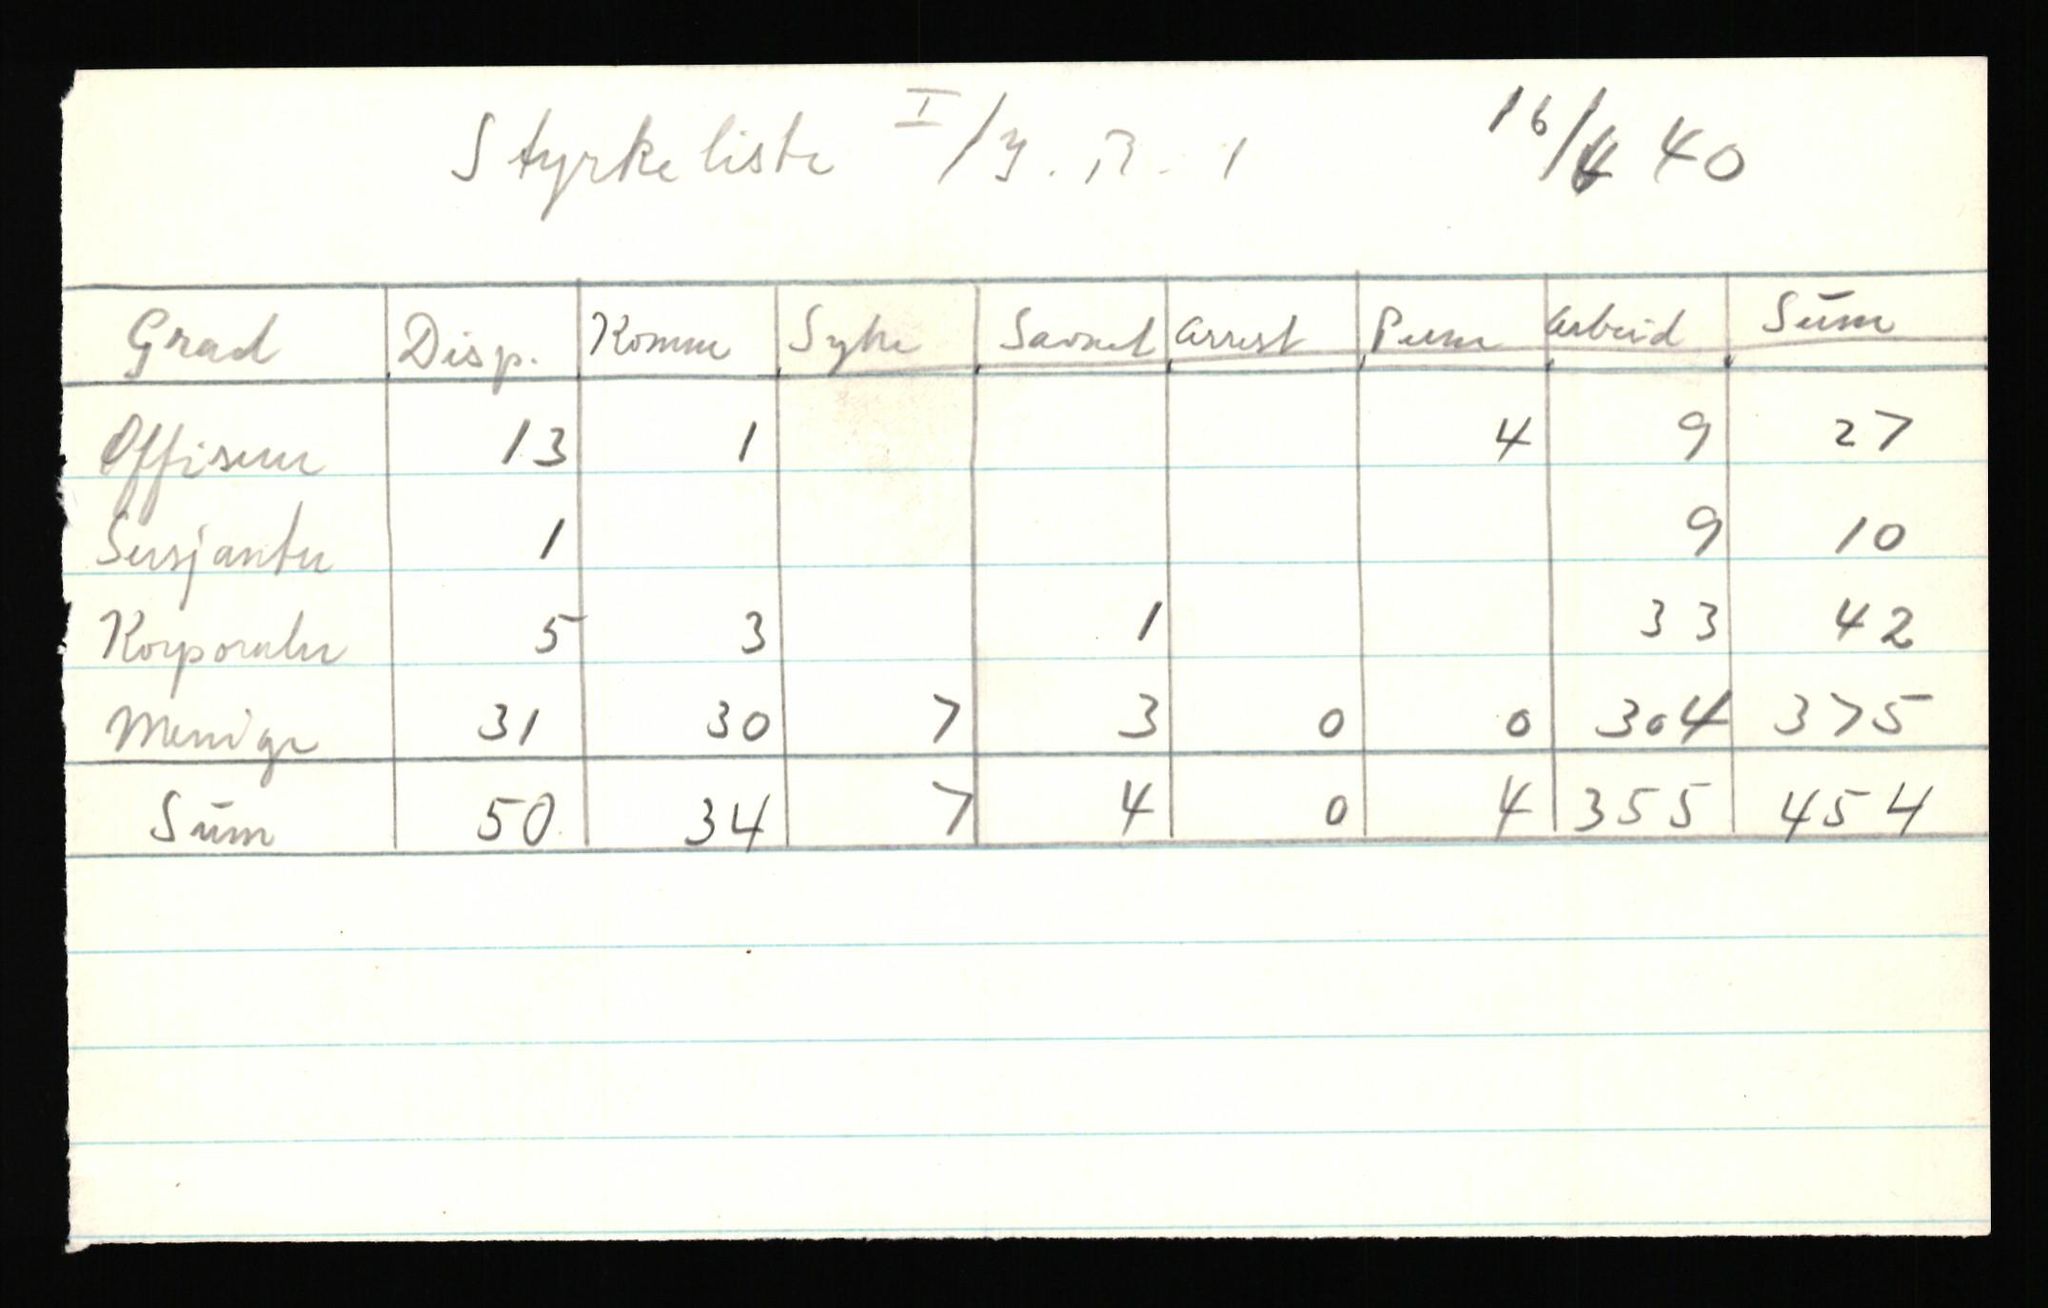 Styrkeliste I/J.R.1 16/4 40
Grad Disp. Komm Syke Savnet Arrest Perm Arbeid Sum
Offiserer 13 1 4 9 27
Sersjanter 1 9 10
Korporaler 5 3 1 33 42
Menige 31 30 7 3 0 0 304 375
Sum 50 34 7 4 0 4 355 454